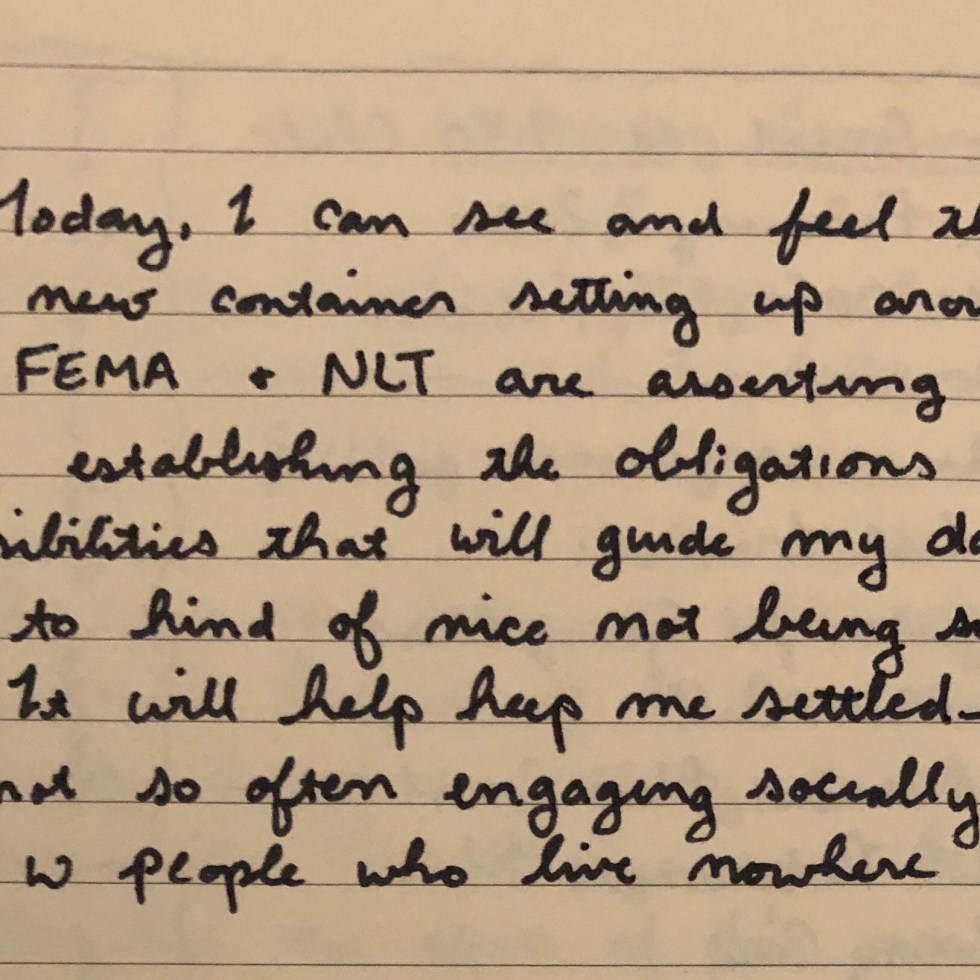 Today, I can see and feel
new container setting up
FEMA + NLT are asserting
establishing the obligations
that will guide my
to kind of nice not being
It will help keep me settled-
not so often engaging socially
w people who live nowhere